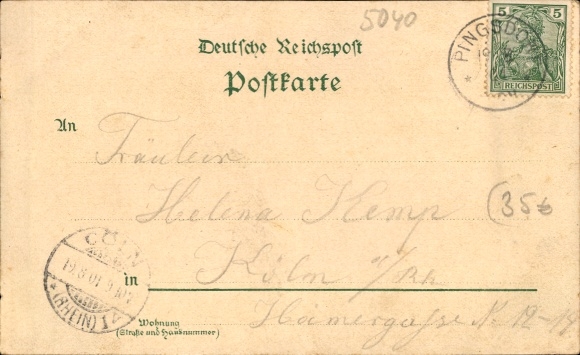 5040
5 5
REICHSPOST
PINGSDORF
Deutsche Reichspost
Postkarte
An
Fräulein
Helena Kemp
35
CÖLN
19.8.01
(RHEIN)
in Köln a/Rh.
Wohnung
(Straße und Hausnummer)
Hämergasse N. 12-14